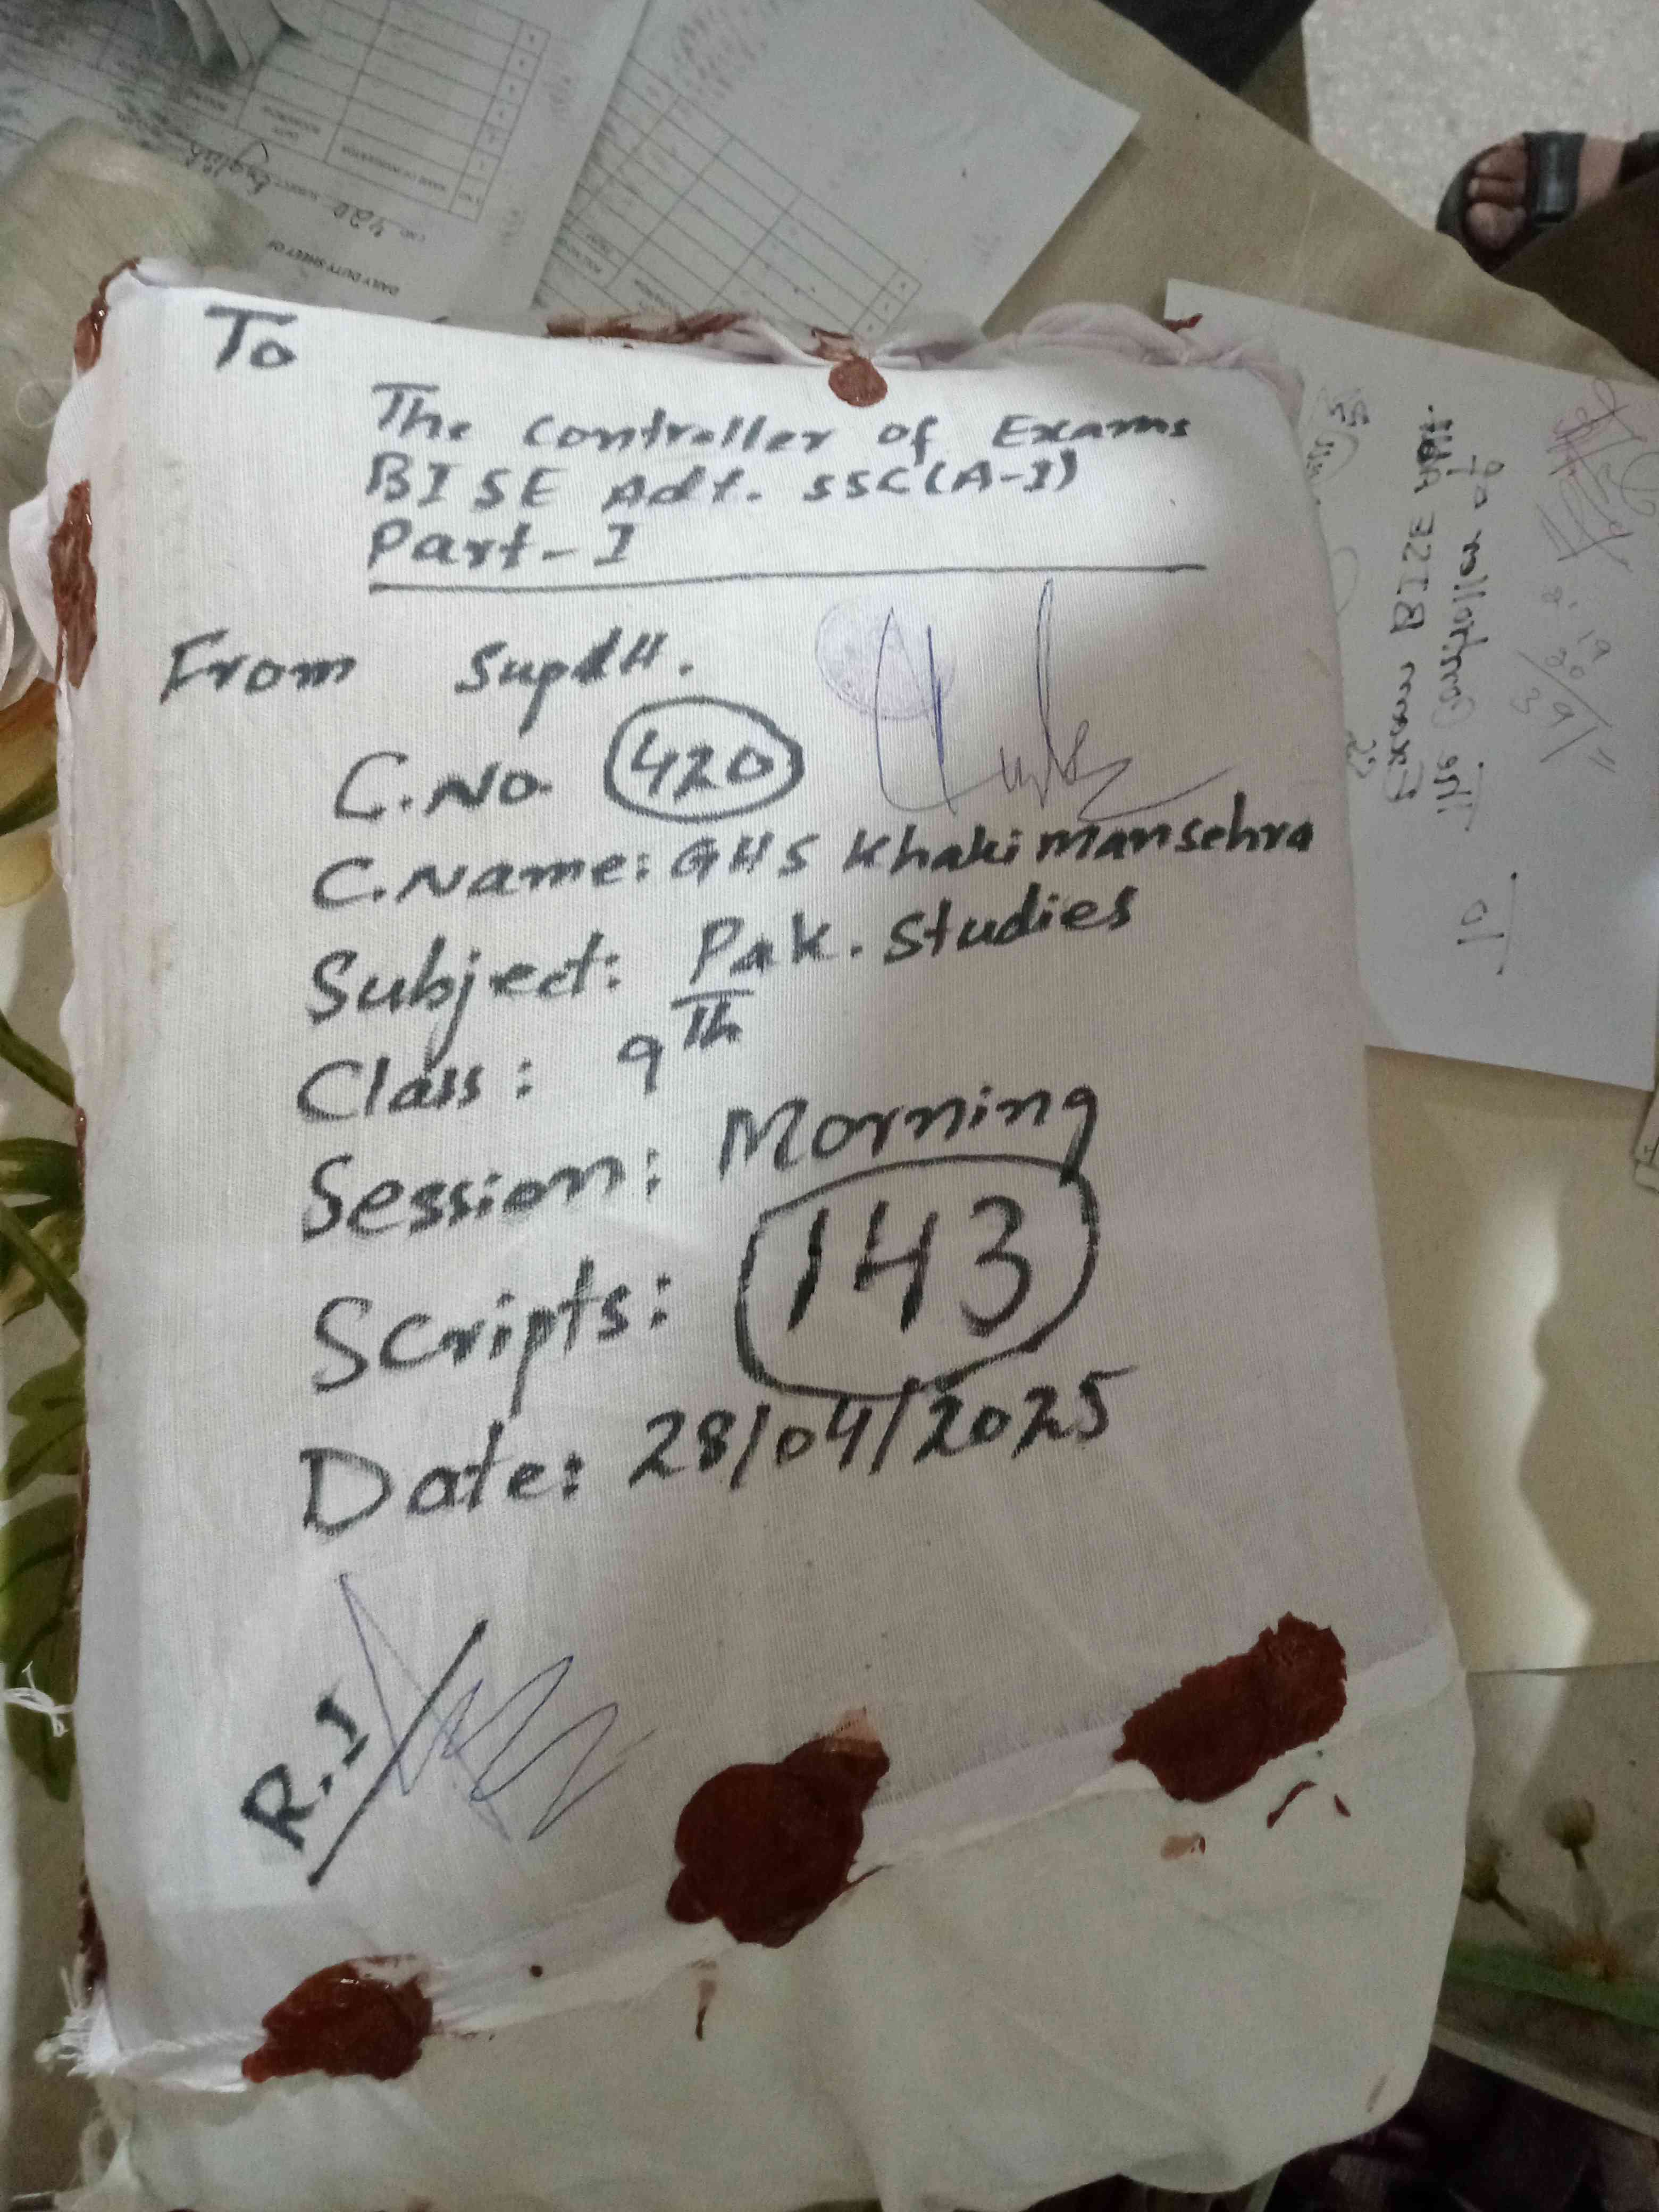 To
The Controller of Exams
BISE Adt. SSC(A-I)
Part-I
From Supdtt.
C.No. 420
C.Name: GHS Khaki Mansehra
Subject: Pak. Studies
Class: 9Th
Session: Morning
Scripts: 143
Date: 28/04/2025
R.I
DAILY DUTY SHEET OF
420
English
To
The Controller of
Exams BISE Abtt.